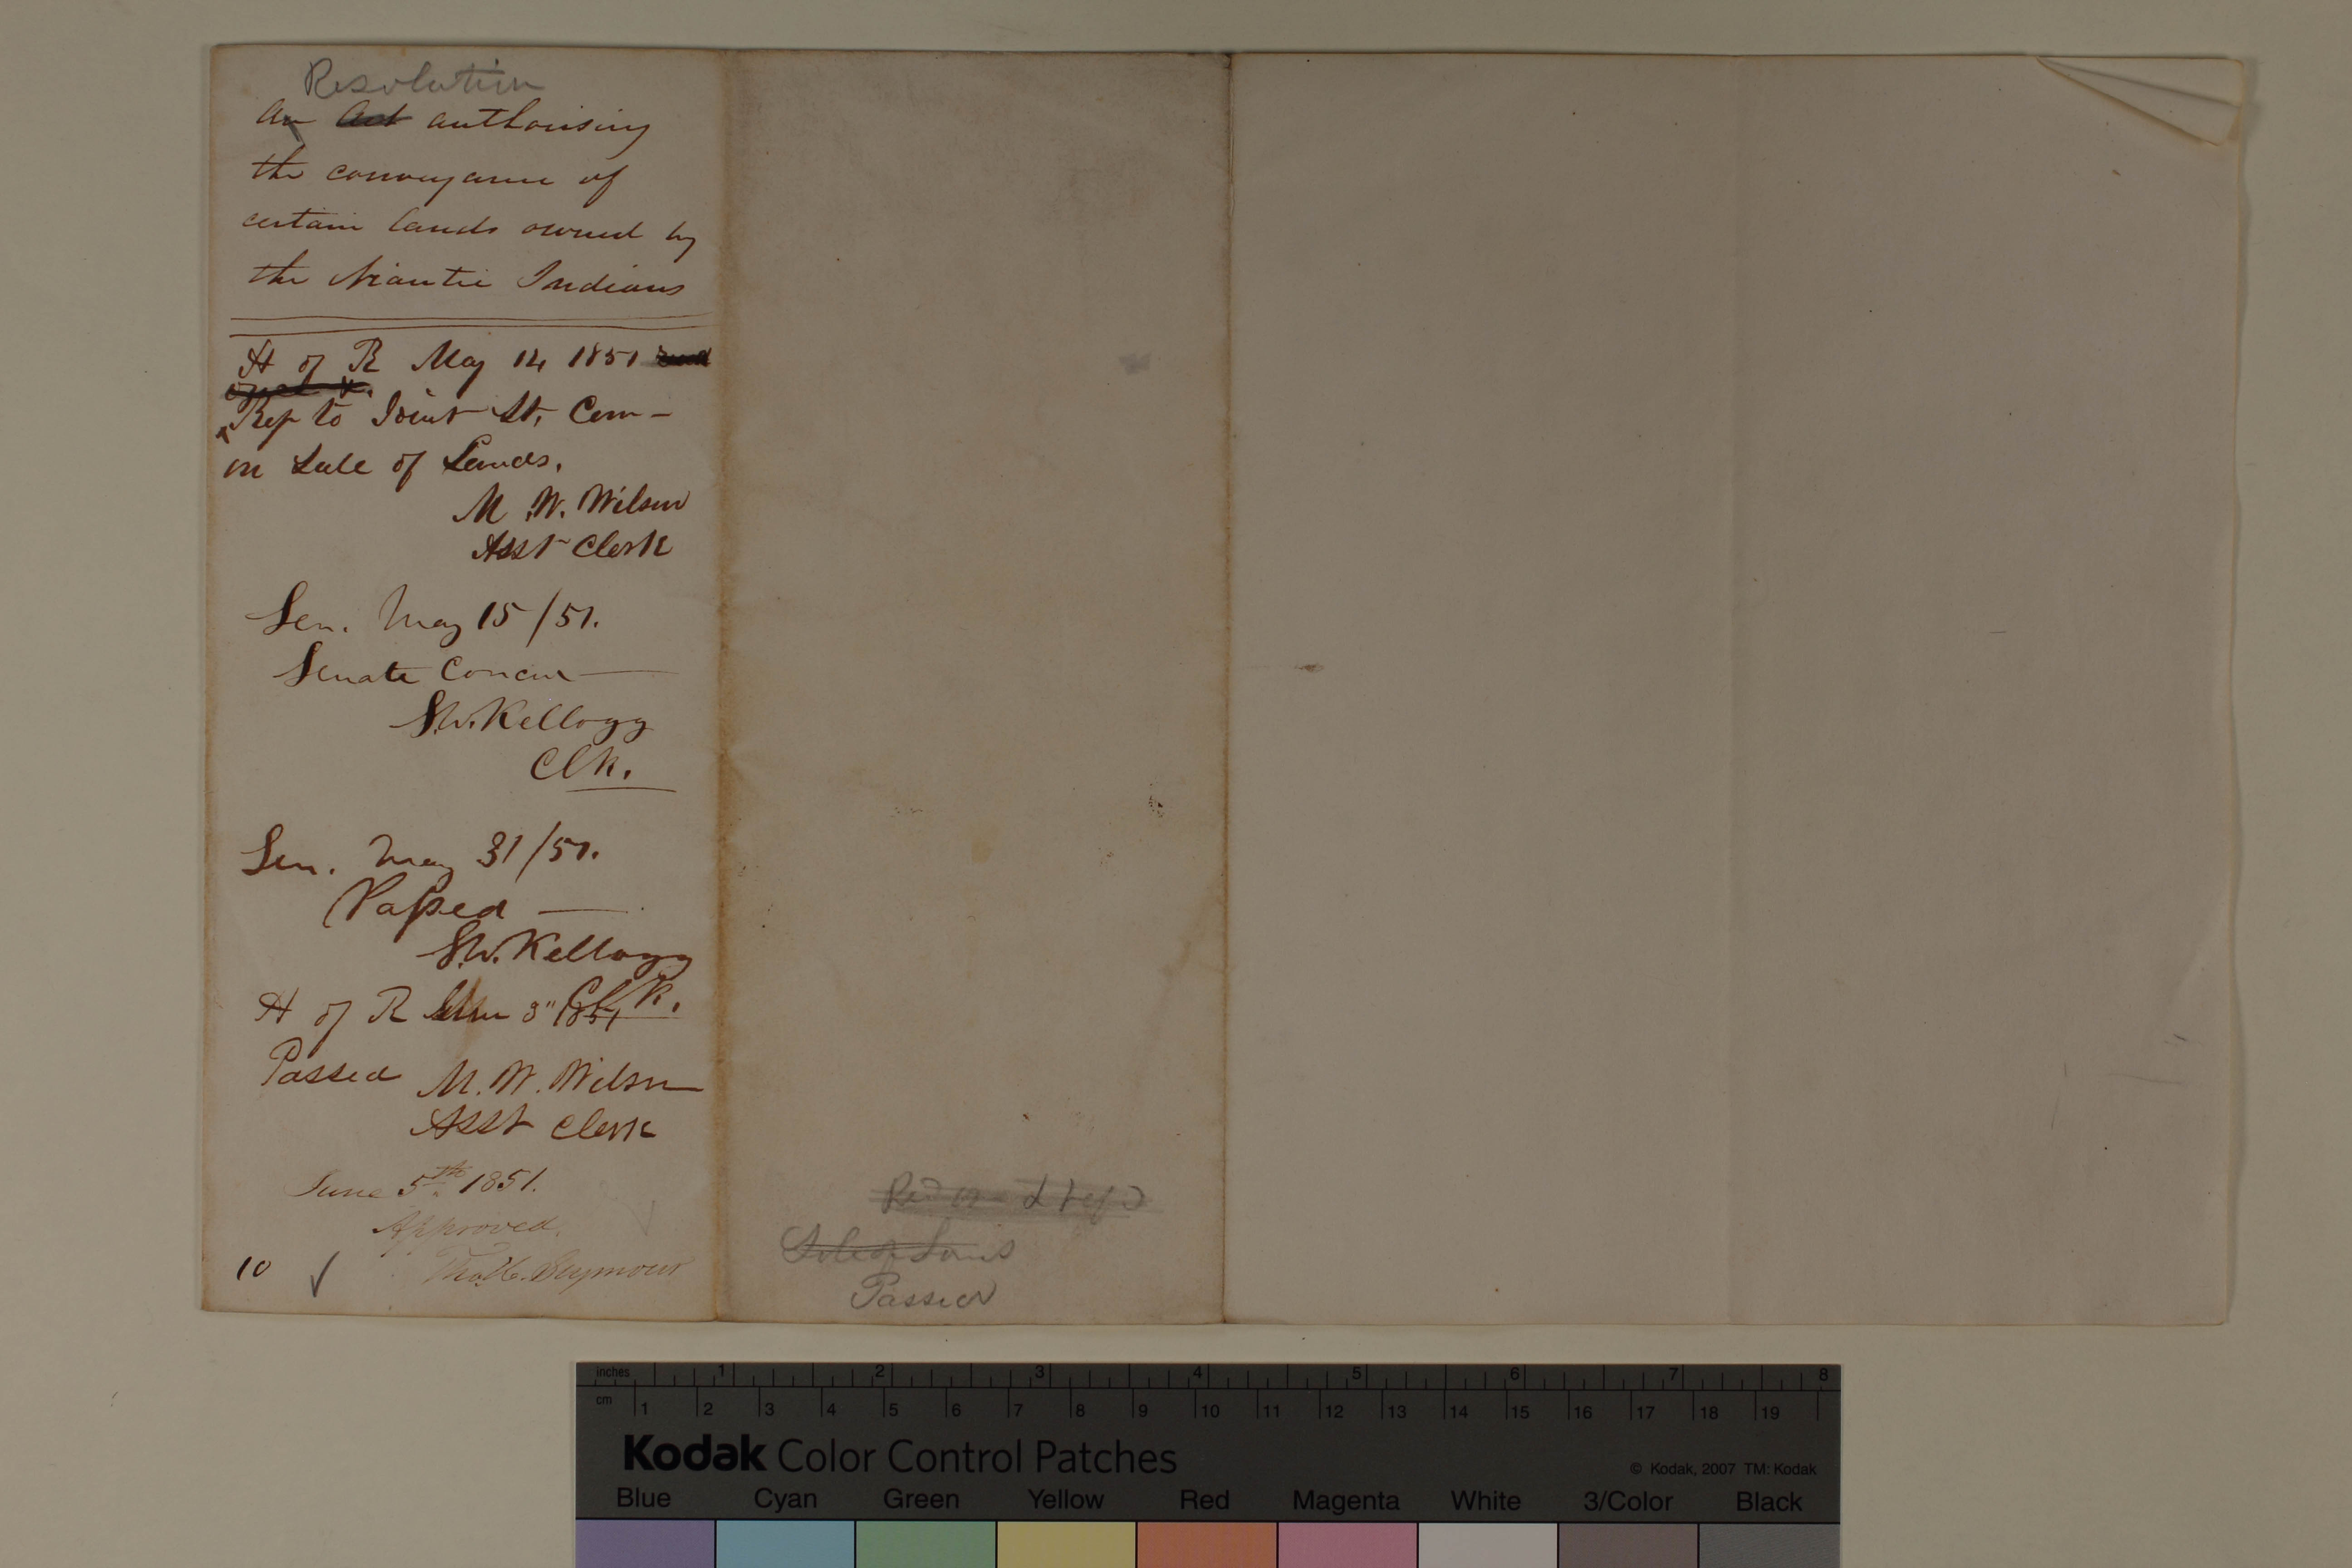 Resolution
An Act authorising
the conveyance of
certain lands owned by
the Niantic Indians
H of R May 14 1851
Ref to Joint St. Com-
on Sale of Lands.
M. W. Wilson
Asst Clerk
Sen. May 15/51.
Senate Concur
S.W. Kellogg
Clk.
Sen. May 31/51.
Passed
S.W. Kellogg
Clk.
H of R June 3" 1851
Passed M. W. Wilson
Asst Clerk
June 5th 1851.
Approved.
Tho. H. Seymour
10
Sale of Lands
Passed
inches 1 2 3 4 5 6 7 8
cm 1 2 3 4 5 6 7 8 9 10 11 12 13 14 15 16 17 18 19
Kodak Color Control Patches
© Kodak, 2007 TM: Kodak
Blue Cyan Green Yellow Red Magenta White 3/Color Black